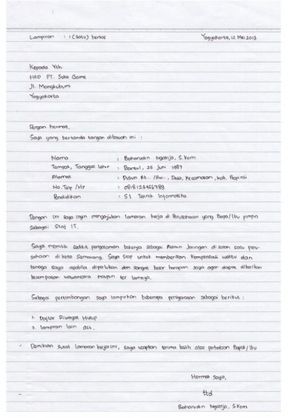 Lampiran : 1 (satu) berkas Yogyakarta, 12 Mei 2013
Kepada Yth
HRD PT. Suka Game
Jl. Mangkubumi
Yogyakarta
Dengan hormat,
Saya yang bertanda tangan dibawah ini :
Nama : Baharudin Ngaenja, S.Kom
Tempat, Tanggal Lahir : Bantul, 25 juni 1987
Alamat : Dusun Rt. /Rw. , Desa, Kecamatan, Kab, Provinsi
No. Telp / Hp : 08812
Pendidikan : S1 Teknik Informatika
Dengan ini saya ingin mengajukan lamaran kerja di Perusahaan yang Bapak/Ibu pimpin
sebagai Staf IT.
Saya memiliki sedikit pengalaman bekerja sebagai Admin Jaringan di salah satu peru-
sahaan di kota Semarang. Saya siap untuk memberikan kompetensi waktu dan
tenaga saya apabila dibutuhkan dan sangat besar harapan saya agar dapat diberikan
kesempatan wawancara maupun tes lainnya.
Sebagai pertimbangan saya lampirkan beberapa persyaratan sebagai berikut :
1. Daftar Riwayat Hidup
2. lampiran lain dst.
Demikian surat lamaran kerja ini, saya ucapkan terima kasih atas perhatian Bapak/Ibu
Hormat Saya,
ttd
Baharudin Ngaenja, S.Kom